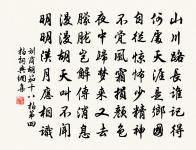 山川路長誰記得
何處天涯是鄉國
自從驚怖少精神
不覺風霜損顏色
夜中歸夢來又去
朦朧豈解傳消息
漫漫胡天叫不聞
明明漢月應相識
劉商胡笳十八拍第四
拍詞典網集